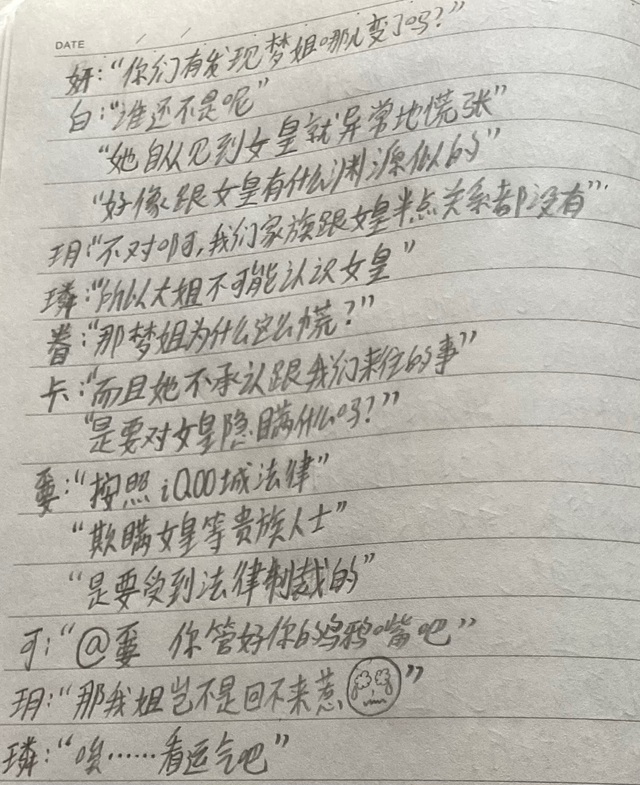 DATE / /
妍：“你们有发现梦姐哪儿变了吗？”
白：“谁还不是呢”
“她自从见到女皇就异常地慌张”
“好像跟女皇有什么渊源似的”
玥：“不对啊，我们家族跟女皇半点关系都没有”
璘：“所以大姐不可能认识女皇”
眷：“那梦姐为什么这么慌？”
卡：“而且她不承认跟我们来往的事”
“是要对女皇隐瞒什么吗？”
：“按照iQOO城法律”
“欺瞒女皇等贵族人士”
“是要受到法律制裁的”
可：“@ 你管好你的乌鸦嘴吧”
玥：“那我姐岂不是回不来惹”
璘：“唉……看运气吧”